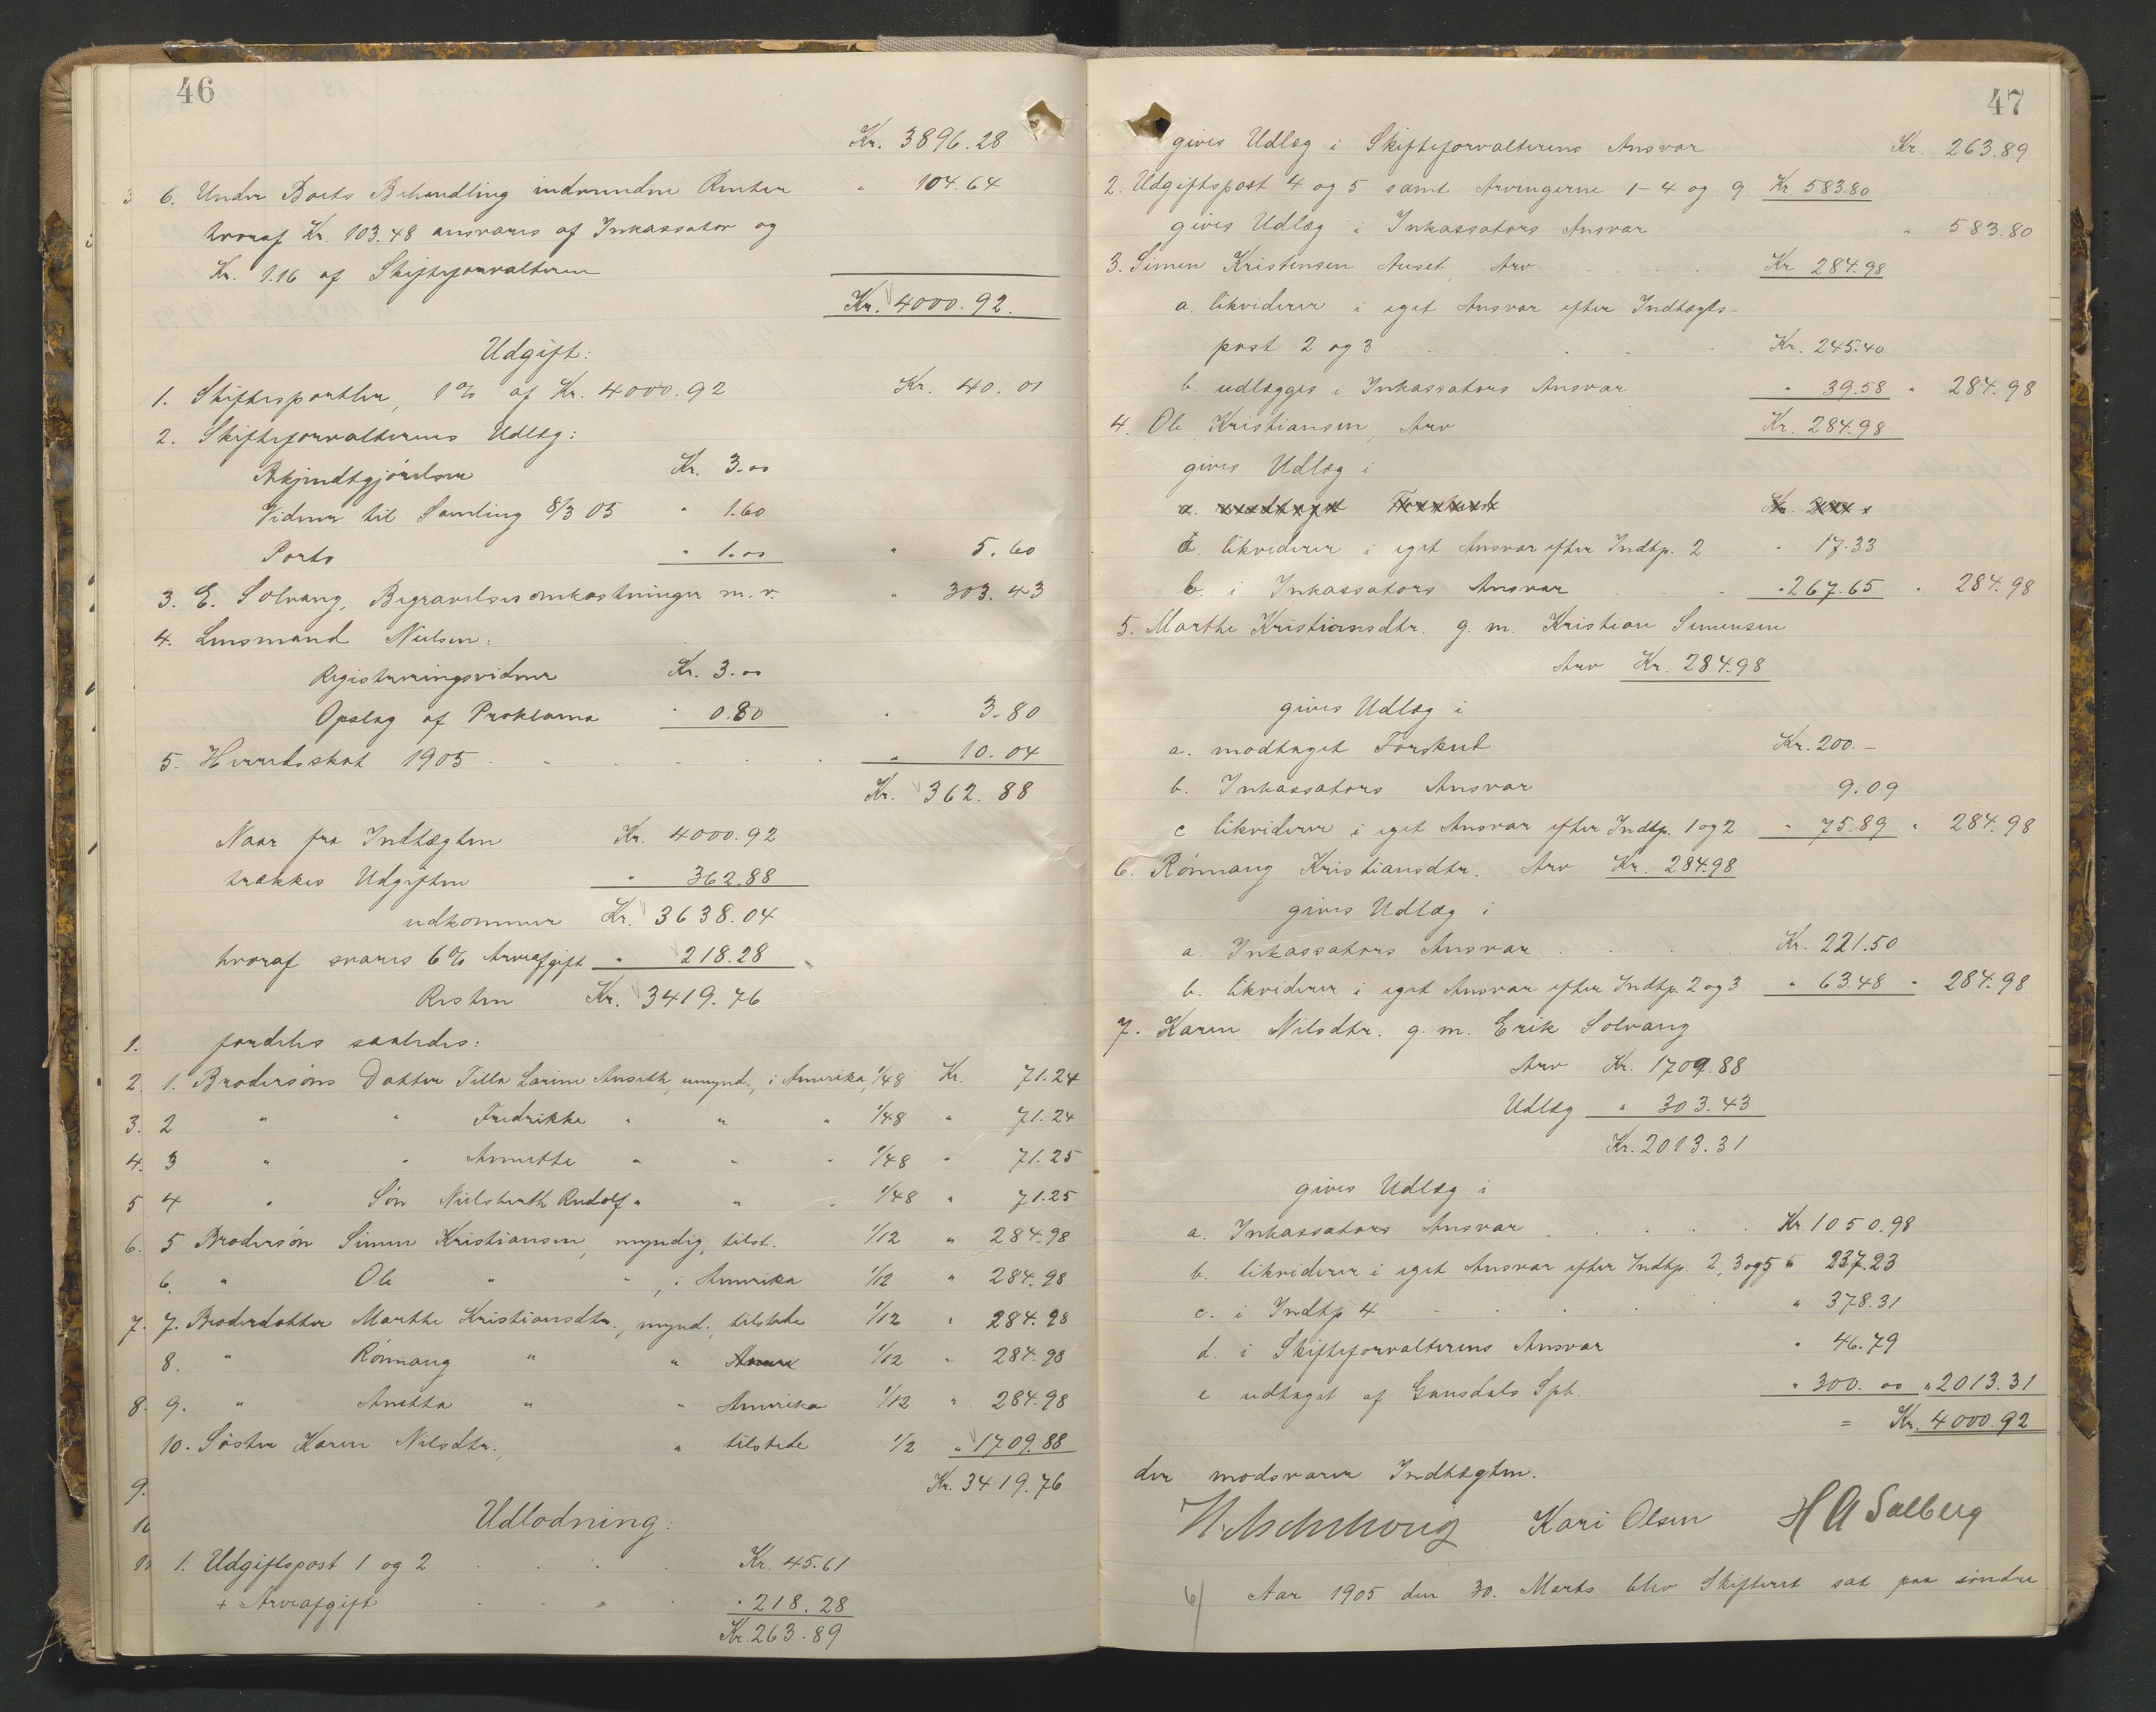 46
Kr. 3896.28
6. Under Boets Behandling indvundne Renter " 104.64
hvoraf Kr. 103.48 ansvares af Inkassator og
Kr. 1.16 af Skifteforvalteren
Kr. 4000.92.
Udgift:
1. Skiftesportler, 1% af Kr. 4000.92 Kr. 40.01
2. Skifteforvalterens Udlæg:
Bekjendtgjørelser Kr. 3.00
Vidner til Samling 8/3 05 " 1.60
Porto " 1.00 " 5.60
3. E. Solvang, Begravelsesomkostninger m.v. " 303.43
4. Lensmand Nielsen:
Registreringsvidner Kr. 3.00
Opslag af Proklama " 0.80 " 3.80
5. Herredsskat 1905 " 10.04
Kr. 362.88
Naar fra Indtægten Kr. 4000.92
trækkes Udgiften " 362.88
udkommer Kr. 3638.04
hvoraf svares 6% Arveafgift " 218.28
Resten Kr. 3419.76
1. fordeles saaledes:
2. 1. Brodersøns Datter Tilla Larine Anseth, umynd., i Amerika, 1/48 Kr. 71.24
3. 2 " " Fredrikke " " " 1/48 " 71.24
4. 3 " " Annette " " " 1/48 " 71.25
5 4 " Søn Rudolf " " " 1/48 " 71.25
6. 5 Brodersøn Simen Kristiansen, myndig, tilst. 1/12 " 284.98
6. " Ole " " , i Amerika 1/12 " 284.98
7. 7. Broderdatter Marthe Kristiansdtr., mynd., tilstede 1/12 " 284.98
8. " Rønnaug " " 1/12 " 284.98
8. 9. " Anetta " " Amerika 1/12 " 284.98
10. Søster Karen Nilsdtr., " tilstede 1/2 " 1709.88
9. Kr. 3419.76
10 Udlodning:
11 1. Udgiftspost 1 og 2 Kr. 45.61
+ Arveafgift " 218.28
Kr. 263.89
47
gives Udlæg i Skifteforvalterens Ansvar Kr. 263.89
2. Udgiftspost 4 og 5 samt Arvingerne 1-4 og 9 Kr. 583.80
gives Udlæg i Inkassators Ansvar " 583.80
3. Simen Kristensen Auset, Arv Kr 284.98
a. likviderer i eget Ansvar efter Indtægts-
post 2 og 3 Kr. 245.40
b. udlægges i Inkassators Ansvar " 39.58 " 284.98
4. Ole Kristiansen, Arv Kr. 284.98
gives Udlæg i
a. modtaget Forskud
a. likviderer i eget Ansvar efter Indtp. 2 " 17.33
b. i Inkassators Ansvar " 267.65 " 284.98
5. Marthe Kristiansdtr. g. m. Kristian Simensen
Arv Kr. 284.98
gives Udlæg i
a. modtaget Forskud Kr. 200.-
b. Inkassators Ansvar 9.09
c likviderer i eget Ansvar efter Indtp. 1 og 2 " 75.89 " 284.98
6. Rønnaug Kristiansdtr. Arv Kr. 284.98
gives Udlæg i
a. Inkassators Ansvar Kr. 221.50
b. likviderer i eget Ansvar efter Indtp. 2 og 3 " 63.48 " 284.98
7. Karen Nilsdtr. g. m. Erik Solvang
Arv Kr. 1709.88
Udlæg " 303.43
Kr. 2013.31
gives Udlæg i
a. Inkassators Ansvar Kr. 1050.98
b. likviderer i eget Ansvar efter Indtp. 2, 3 og 5 " 237.23
c. i Indtp 4 " 378.31
d. i Skifteforvalterens Ansvar " 46.79
e udtaget af Gausdals Spb. " 300.00 " 2013.31
= Kr. 4000.92
der modsvarer Indtægten.
Kari Olsen H A Salberg
6) Aar 1905 den 30. Marts blev Skifteret sat paa søndre